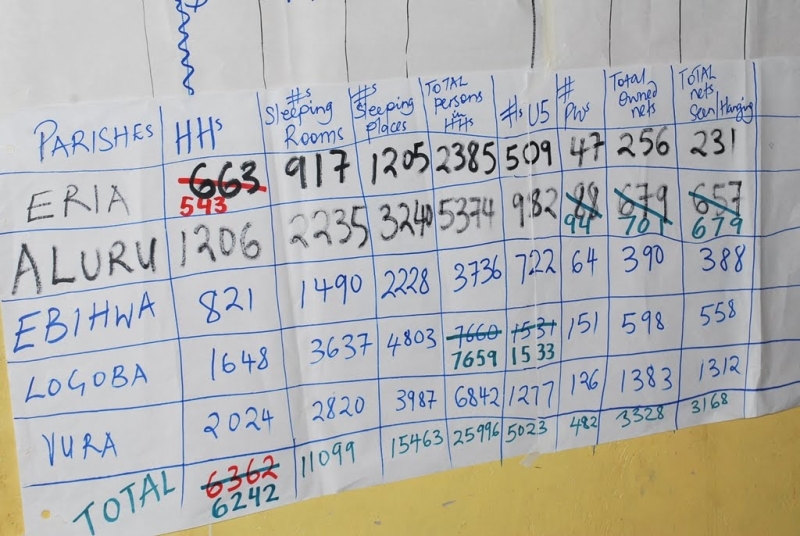 PARISHES HHs #s Sleeping Rooms #s Sleeping places TOTAL persons in HHs #s U5 # PWs Total Owned nets TOTAL nets Seen/Hanging
ERIA 663 543 917 1205 2385 509 47 256 231
ALURU 1206 2235 3240 5374 982 88 94 679 701 657 679
EBIHWA 821 1490 2228 3736 722 64 390 388
LOGOBA 1648 3637 4803 7660 7659 1531 1533 151 598 558
YURA 2024 2820 3987 6842 1277 126 1383 1312
TOTAL 6362 6242 11099 15463 25996 5023 482 3328 3168